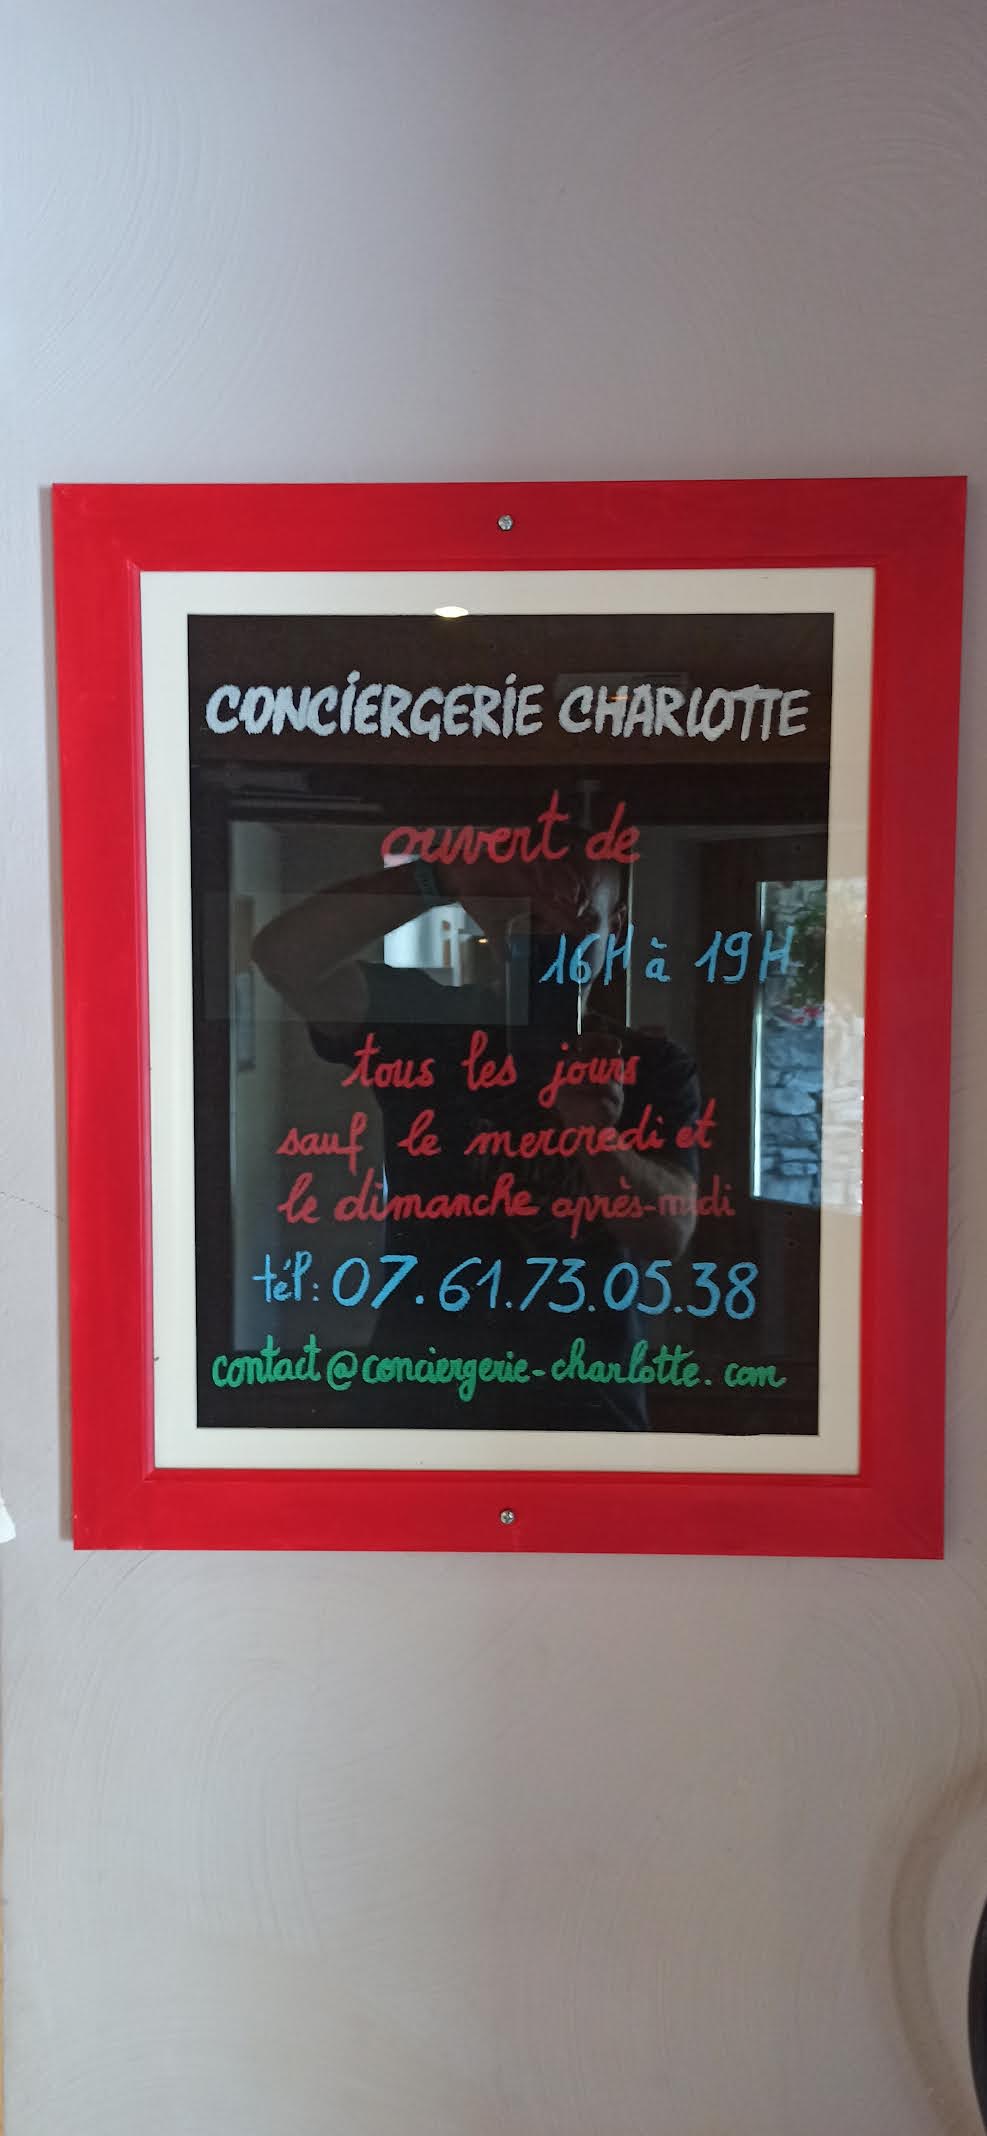 CONCiERGERiE CHARLOTTE
ouvert de
16H à 19H
tous les jours
sauf le mercredi et
le dimanche après-midi
tél: 07.61.73.05.38
contact@conciergerie-charlotte.com